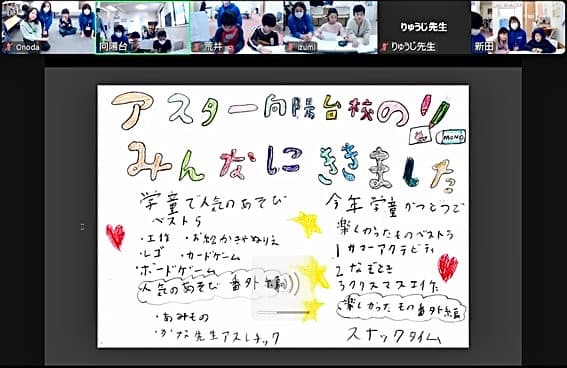 Onoda
向陽台
荒井
izumi
りゅうじ先生
りゅうじ先生
新田
アスター向陽台校の!!
みんなにききました
MONO
学童で人気のあそび
ベスト5
・工作 ・お絵かきぬりえ
・レゴ ・カードゲーム
・ボードゲーム
人気のあそび 番外編
・あみもの
・かな先生アスレチック
今年学童かつどうで
楽しかったものベスト3
1 サマーアクティビティ
2 なぞとき
3 クリスマス工作
楽しかったもの番外編
スナックタイム